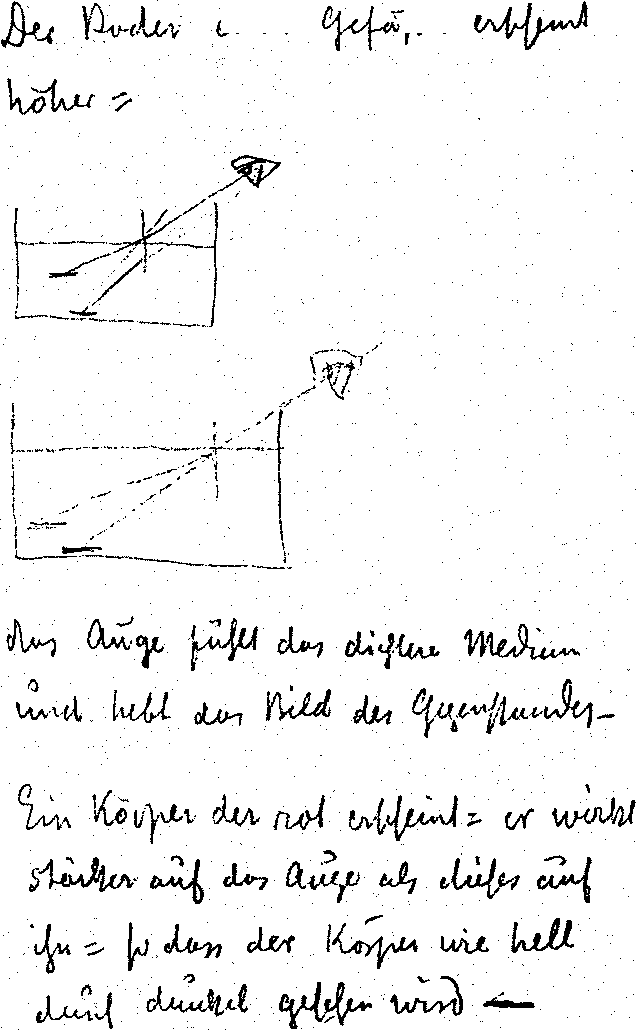 Der Boden i. Gefä. erscheint
höher =
das Auge fühlt das dichtere Medium
und hebt das Bild des Gegenstandes –
Ein Körper der rot erscheint = er wirkt
stärker auf das Auge als dieses auf
ihn = so dass der Körper wie hell
durch dunkel gesehen wird —